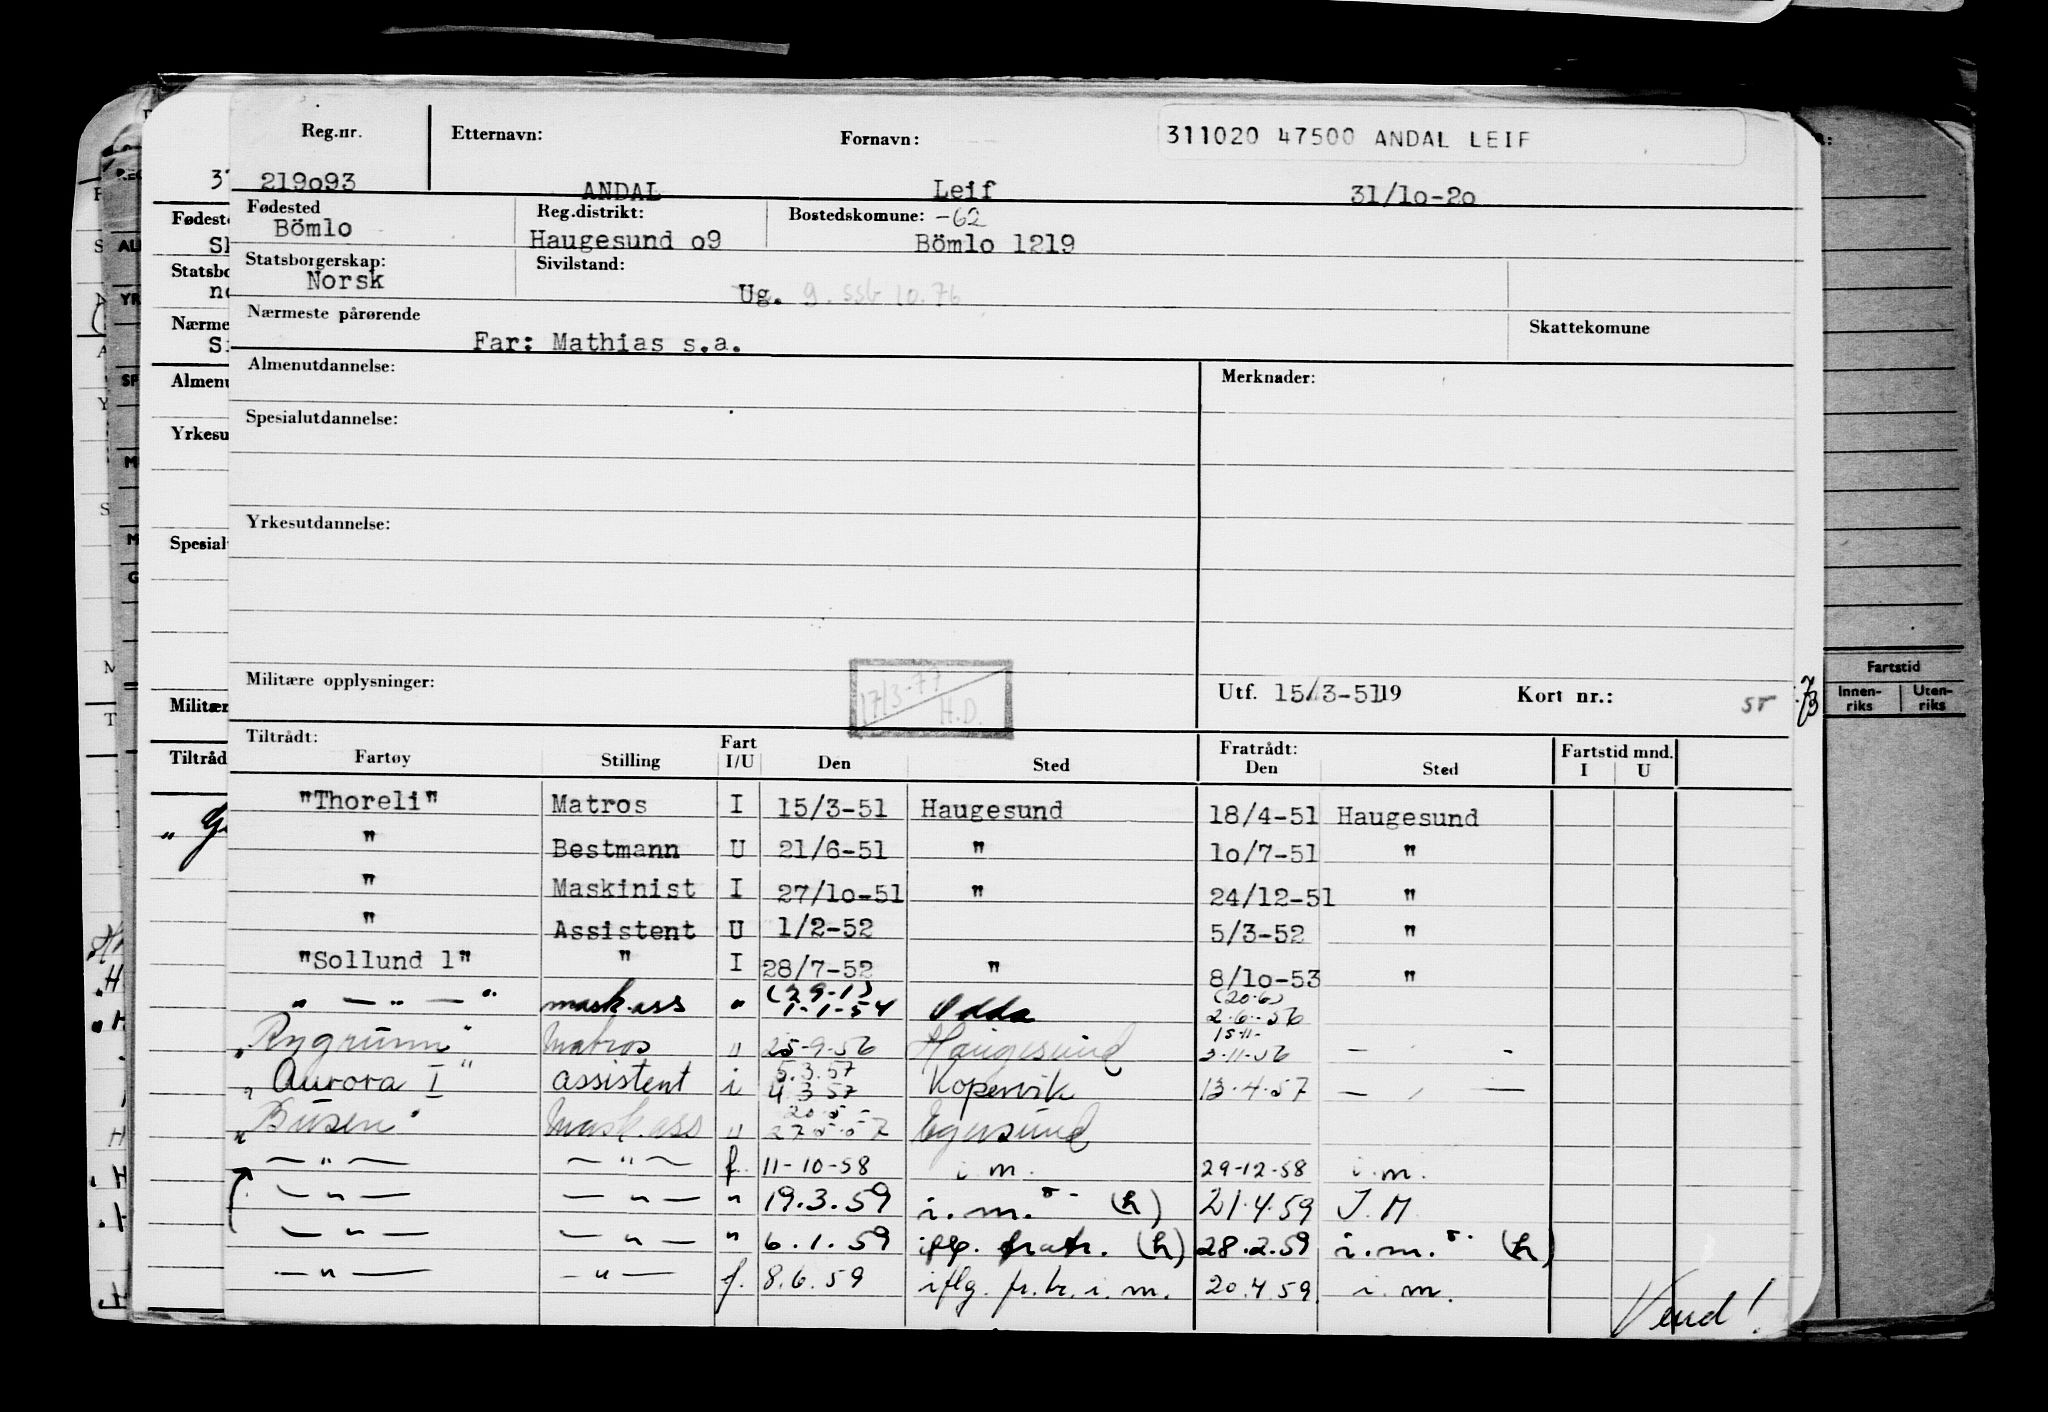 Reg.nr. Etternavn: Fornavn: 311020 47500 ANDAL LEIF
219o93 ANDAL Leif 31/1o-2o
Fødested Reg.distrikt: Bostedskomune: -62
Bömlo Haugesund o9 Bömlo 1219
Statsborgerskap: Sivilstand:
Norsk Ug. g. ssb 10.76
Nærmeste pårørende Skattekomune
Far: Mathias s.a.
Almenutdannelse: Merknader:
Spesialutdannelse:
Yrkesutdannelse:
Militære opplysninger: 17/3-77 H.D. Utf. 15/3-5119 Kort nr.:
Tiltrådt: Fratrådt: Fartstid mnd.
Fartøy Stilling Fart I/U Den Sted Den Sted I U
"Thoreli" Matros I 15/3-51 Haugesund 18/4-51 Haugesund
" Bestmann U 21/6-51 " 1o/7-51 "
" Maskinist I 27/1o-51 " 24/12-51 "
" Assistent U 1/2-52 5/3-52 "
"Sollund 1" " I 28/7-52 " 8/1o-53 "
" — " — " mask.ass " (29-1) 1-1-54 Odda (20.6) 2.6.-56
"Rygrunn" Matros " 25-9-56 Haugesund 15-11- 3-11-56 — " —
"Aurora I" assistent i 5.3.57 4 3 57 Kopervik 13.4.57 — " —
"Busen" Mask.ass " 20.5 - 27.5.57 Egersund
— " — — " — f. 11-10-58 i.m. 29-12-58 i.m.
— " — — " — " 19.3.59 i.m. (h) 21.4.59 I.M
— " — — " — " 6.1.59 iflg. fratr. (h) 28.2.59 i.m. (h)
— " — — " — f. 8.6.59 iflg. fr.tr. i.m. 20.4.59. i.m.
Vend!
Fartstid
Innen-riks Uten-riks